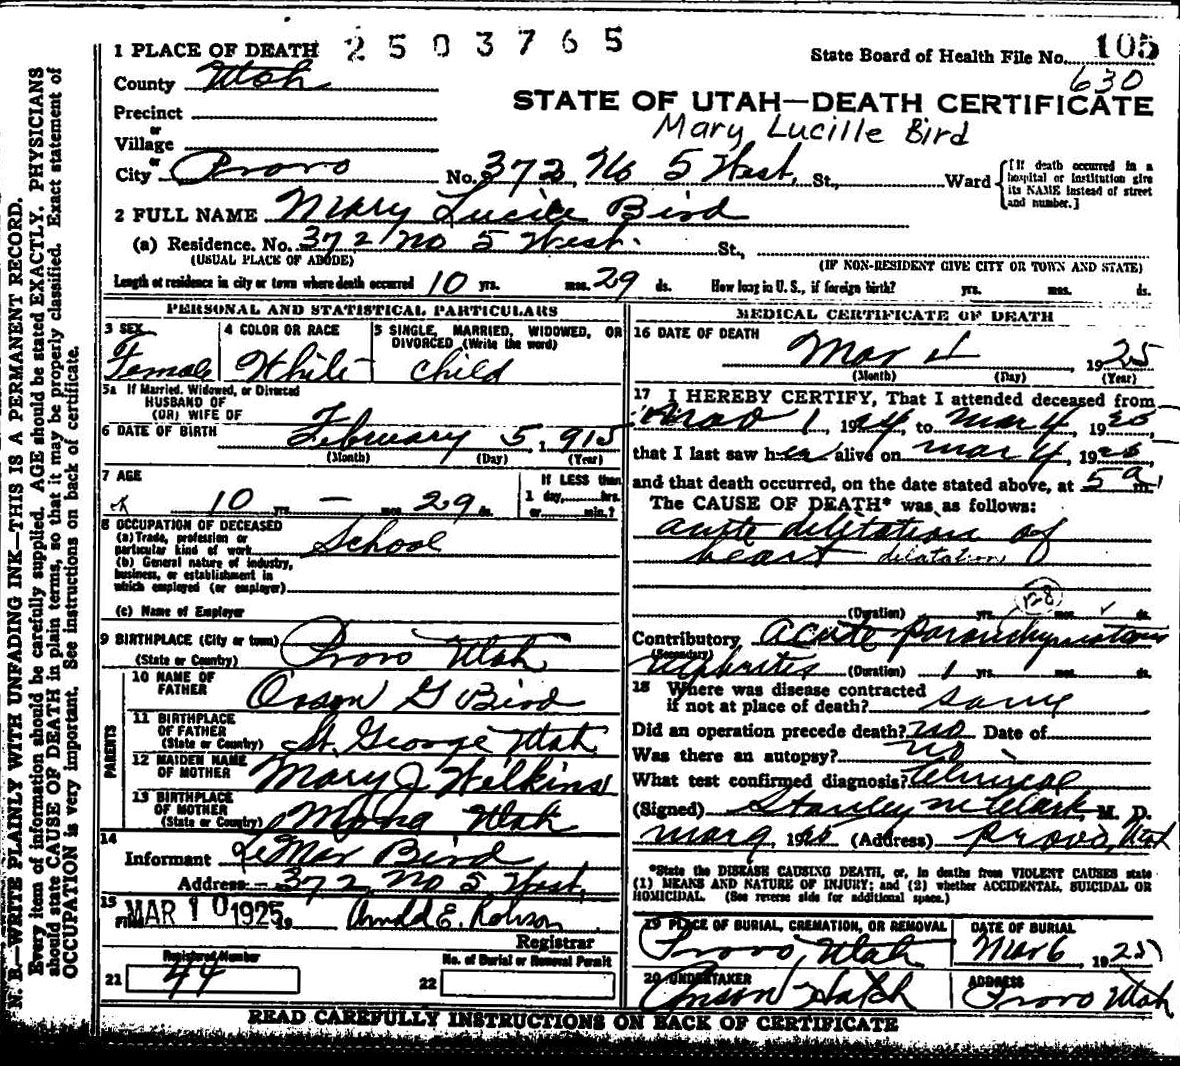 N. B.—WRITE PLAINLY WITH UNFADING INK—THIS IS A PERMANENT RECORD.
Every item of information should be carefully supplied. AGE should be stated EXACTLY. PHYSICIANS
should state CAUSE OF DEATH in plain terms, so that it may be properly classified. Exact statement of
OCCUPATION is very important. See instructions on back of certificate.
2503765
1 PLACE OF DEATH
State Board of Health File No. 105
630
County Utah
STATE OF UTAH—DEATH CERTIFICATE
Precinct
Mary Lucille Bird
or
Village
or
City Provo No. 372 No 5 West, St., Ward
[If death occurred in a
hospital or institution give
its NAME instead of street
and number.]
2 FULL NAME Mary Lucile Bird
(a) Residence. No. 372 No 5 West. St.,
(USUAL PLACE OF ABODE)
(IF NON-RESIDENT GIVE CITY OR TOWN AND STATE)
Length of residence in city or town where death occurred 10 yrs. mos. 29 ds. How long in U. S., if foreign birth? yrs. mos. ds.
PERSONAL AND STATISTICAL PARTICULARS
3 SEX
Female
4 COLOR OR RACE
White
5 SINGLE, MARRIED, WIDOWED, OR
DIVORCED (Write the word)
child
5a If Married, Widowed, or Divorced
HUSBAND OF
(OR) WIFE OF
6 DATE OF BIRTH February 5, 1915
(Month) (Day) (Year)
7 AGE
10 yrs. — mos. 29 ds.
If LESS than
1 day, hrs.
or min.?
8 OCCUPATION OF DECEASED
(a) Trade, profession or
particular kind of work School
(b) General nature of industry,
business, or establishment in
which employed (or employer)
(c) Name of Employer
9 BIRTHPLACE (City or town)
(State or Country) Provo Utah
PARENTS
10 NAME OF
FATHER Orson G Bird
11 BIRTHPLACE
OF FATHER
(State or Country) St. George Utah
12 MAIDEN NAME
OF MOTHER Mary J Wilkins
13 BIRTHPLACE
OF MOTHER
(State or Country) Mona Utah
14
Informant LeMar Bird
Address 372 No 5 West,
15
Filed MAR 10 1925, 19 Registrar
21 Registered Number
44
22 No. of Burial or Removal Permit
MEDICAL CERTIFICATE OF DEATH
16 DATE OF DEATH
Mar 4 1925
(Month) (Day) (Year)
17 I HEREBY CERTIFY, That I attended deceased from
1, 1924, to Mar 4, 1925,
that I last saw her alive on Mar 4, 1925
and that death occurred, on the date stated above, at 5 a m.
The CAUSE OF DEATH* was as follows:
acute dilitation of
heart dilatation
128
(Duration) yrs. mos. ds.
Contributory acute
(Secondary) (Duration) 1 yrs. mos. ds.
18 Where was disease contracted
if not at place of death? same
Did an operation precede death? no Date of
Was there an autopsy? no
What test confirmed diagnosis? Clinical
(Signed) Stanley M Clark, M. D.
Mar 9, 1925 (Address) Provo, Utah
*State the DISEASE CAUSING DEATH, or, in deaths from VIOLENT CAUSES state
(1) MEANS AND NATURE OF INJURY; and (2) whether ACCIDENTAL, SUICIDAL OR
HOMICIDAL. (See reverse side for additional space.)
19 PLACE OF BURIAL, CREMATION, OR REMOVAL
Provo, Utah
DATE OF BURIAL
Mar 6, 1925
20 UNDERTAKER
Anson Hatch
ADDRESS
Provo Utah
READ CAREFULLY INSTRUCTIONS ON BACK OF CERTIFICATE